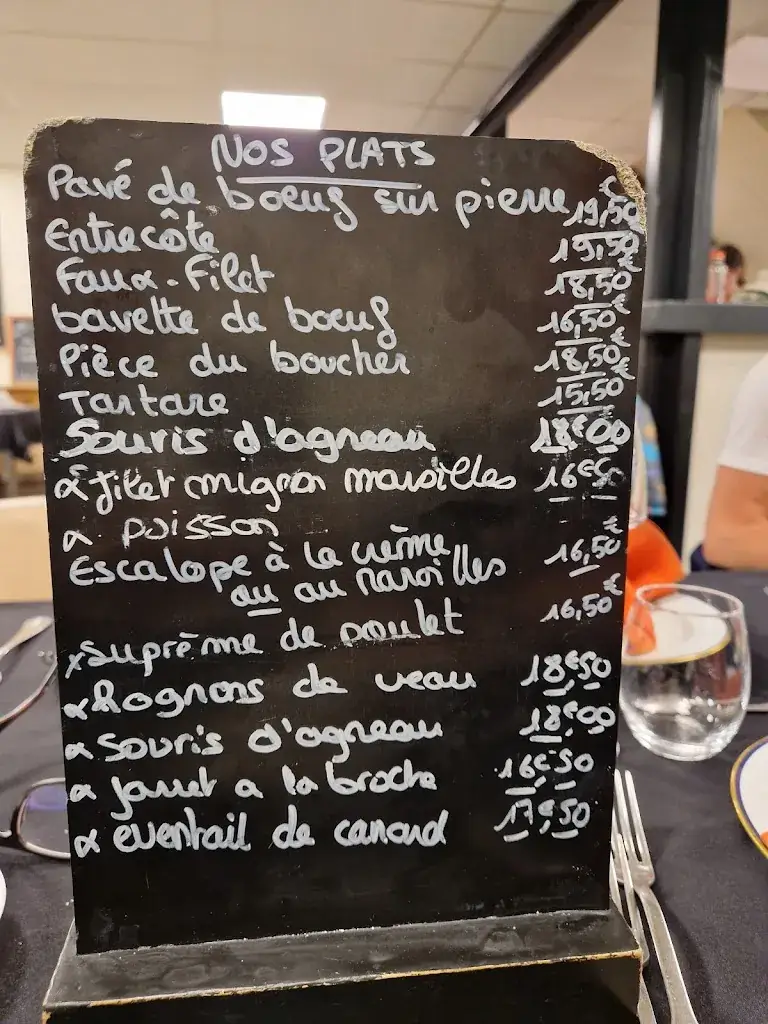 NOS PLATS
Pavé de boeuf sur pierre 19,50€
Entrecôte 19,50€
Faux-Filet 18,50€
bavette de boeuf 16,50€
Pièce du boucher 18,50€
Tartare 15,50€
Souris d'agneau 18€00
x filet mignon maroilles 16€50
x poisson
Escalope à la crème 16,50€
ou au maroilles
x Suprème de poulet 16,50€
x Rognons de veau 18€50
x Souris d'agneau 18€00
x Jarret a la broche 16€50
x eventail de canard 17€50